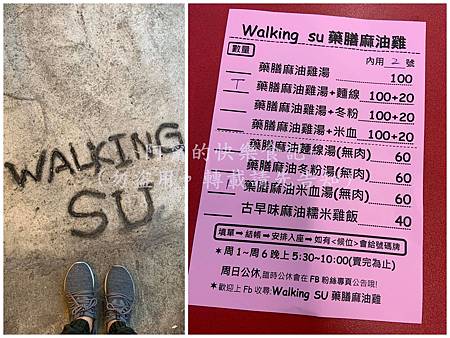 WALKING
SU
Walking su 藥膳麻油雞
數量
內用 2 號
藥膳麻油雞湯 100
藥膳麻油雞湯+麵線 100+20
藥膳麻油雞湯+冬粉 100+20
藥膳麻油雞湯+米血 100+20
藥膳麻油麵線湯(無肉) 60
藥膳麻油冬粉湯(無肉) 60
藥膳麻油米血湯(無肉) 60
古早味麻油糯米雞飯 40
填單➡結帳➡安排入座➡如有<候位>會給號碼牌
★周1~周6 晚上5:30~10:00(賣完為止)
周日公休,臨時公休會在FB粉絲專頁公告哦!
★歡迎上Fb收尋:Walking SU 藥膳麻油雞